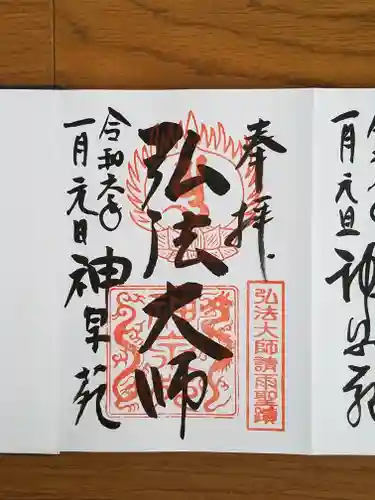 奉拝
弘法大師
弘法大師請雨聖蹟
令和六年
一月元日
神泉苑
一月元旦